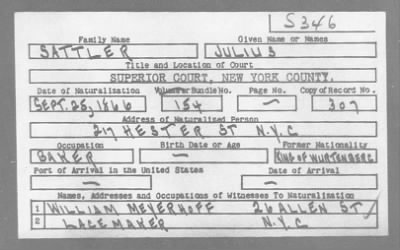 S346
Family Name Given Name or Names
SATTLER JULIUS
Title and Location of Court
SUPERIOR COURT, NEW YORK COUNTY.
Date of Naturalization Volume or Bundle No. Page No. Copy of Record No.
SEPT. 25, 1866 154 — 307
Address of Naturalized Person
217 HESTER ST N.Y.C
Occupation Birth Date or Age Former Nationality
BAKER — KING OF WURTENBERG
Port of Arrival in the United States Date of Arrival
— —
Names, Addresses and Occupations of Witnesses To Naturalization
1 WILLIAM MEYERHOFF 26 ALLEN ST
2 LACE MAKER N.Y.C